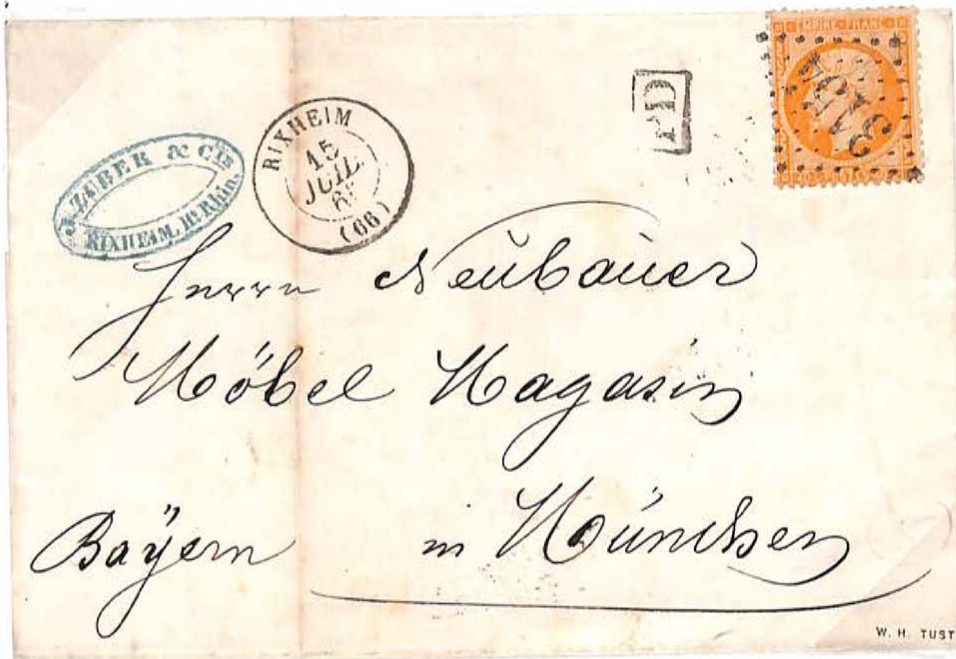 EMPIRE FRANC
3154
PD
RIXHEIM
15
JUIL
(66)
J. ZUBER & Cie
RIXHEIM, Ht Rhin.
Herrn Neubauer
Möbel Magasin
in München
Baÿern
W. H. TUST